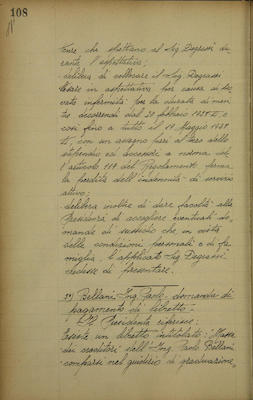 108
ture che spettano al Sig. Degrassi du-
rante l'aspettativa;
delibera di collocare il Sig. Degrassi
Cesare in aspettativa per causa di
infermità per la durata di
decorrendi dal 20 febbraio
fino a tutto il 19 Maggio
con un assegno pari al terzo dello
stipendio ed accessori a norma del-
l'articolo 111 del Regolamento, ferma
la perdita dell'indennità di servizio
attivo;
delibera inoltre di dare facoltà alla
Presidenza di accogliere eventuali do-
mande di sussidio che in vista
delle condizioni personali e di fa-
miglia, l'applicato Sig. Degrassi
credesse di presentare.
Bellani Ing. Paolo, domanda di
pagamento di debito
Il Presidente riferisce:
Esiste un libretto intitolato: "Massa
dei creditori dell'Ing. Paolo Bellani
comparsi nel giudizio di graduazione,